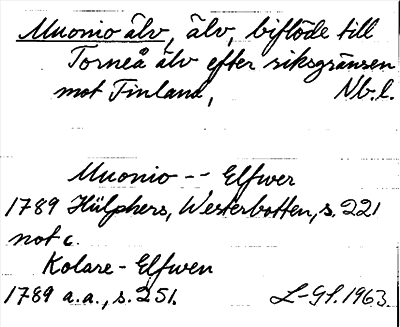 Muonio älv, älv, biflöde till
Torneå älv efter riksgränsen
mot Finland, Nb.l.
Muonio -- Elfwer
1789 Hülphers, Westerbotten, s. 221
not c.
Kolare - Elfwen
1789 a.a., s. 251. L-Gl. 1963.